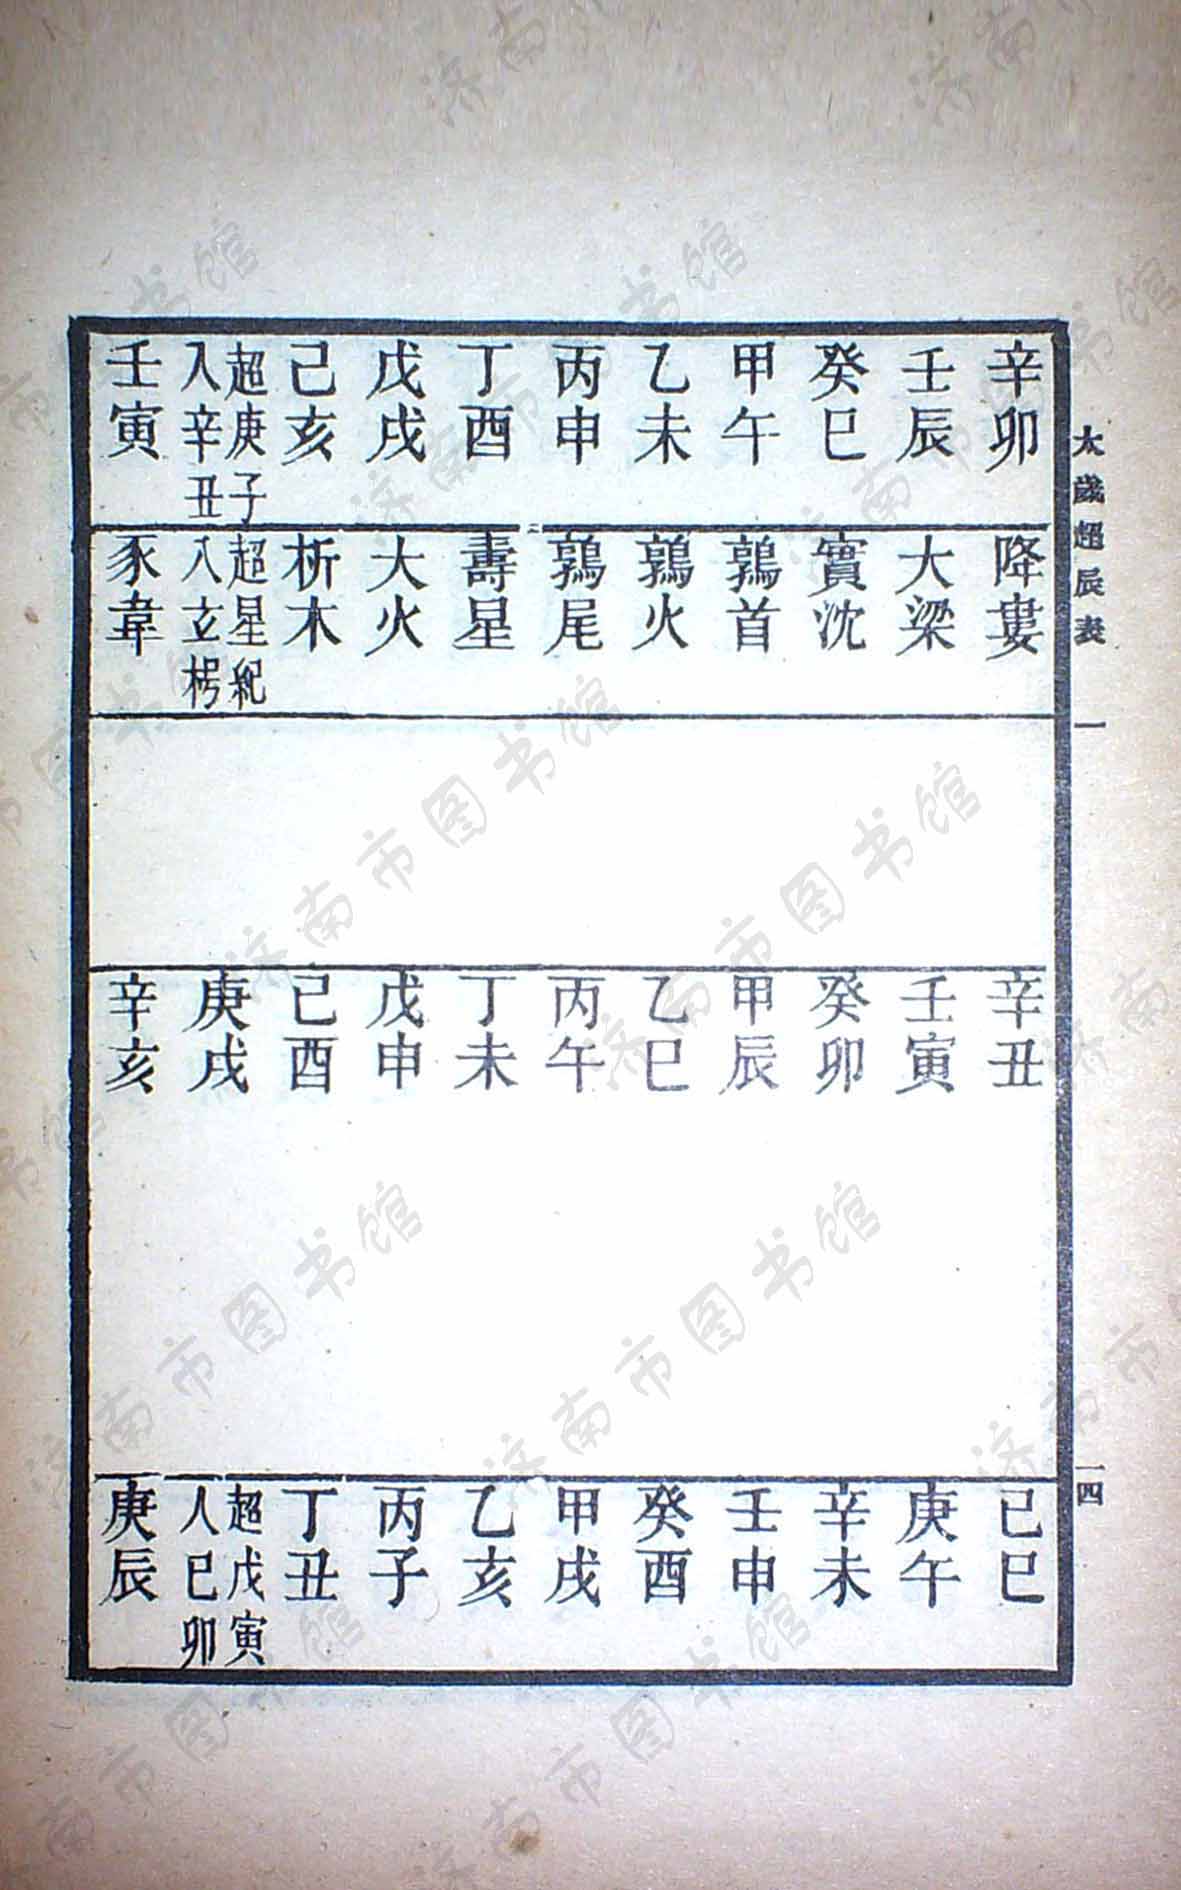 太歲超辰表 一 一四
辛卯 降婁 辛丑 己巳
壬辰 大梁 壬寅 庚午
癸巳 實沈 癸卯 辛未
甲午 鶉首 甲辰 壬申
乙未 鶉火 乙巳 癸酉
丙申 鶉尾 丙午 甲戌
丁酉 壽星 丁未 乙亥
戊戌 大火 戊申 丙子
己亥 析木 己酉 丁丑
超庚子入辛丑 超星紀入玄枵 庚戌 超戊寅入己卯
壬寅 豕韋 辛亥 庚辰
济南市图书馆